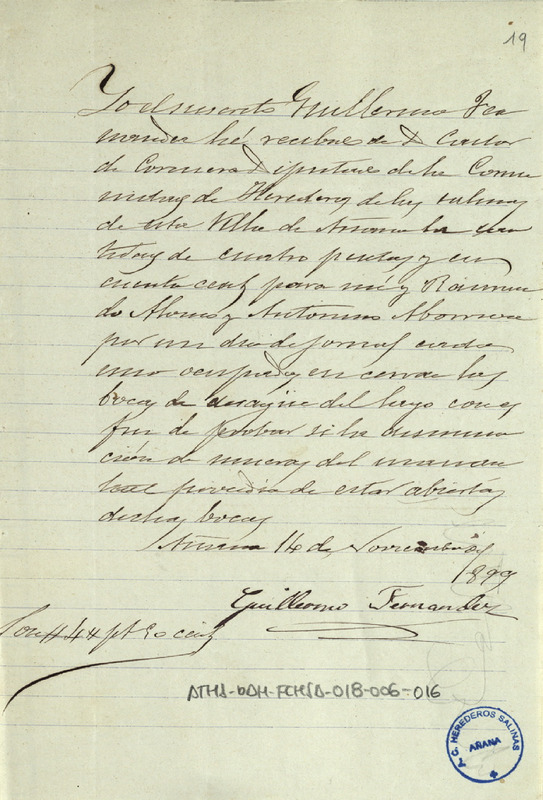 19
Yo el suscrito Guillermo Fer
nandez hé recibido de D Castor
de Corcuera Diputado de la Comu
nidad de Herederos de las salinas
de esta Villa de Añana la can
tidad de cuatro pesetas y cin
cuenta cents para mi y Raimun
do Alonso y Antonino
por un dia de jornal cada
uno ocupados en cerrar las
bocas de desagüe del lago con el
fin de probar si la disminu
ción de mueras del manan
tial provedia de estar abiertas
dichas bocas
Añana 14 de Noviembre de
1899
Guillermo Fernandez
Son # 4 pts 50 cents
ATHA-DAH-FCHSA-018-006-016
C. HEREDEROS SALINAS
AÑANA